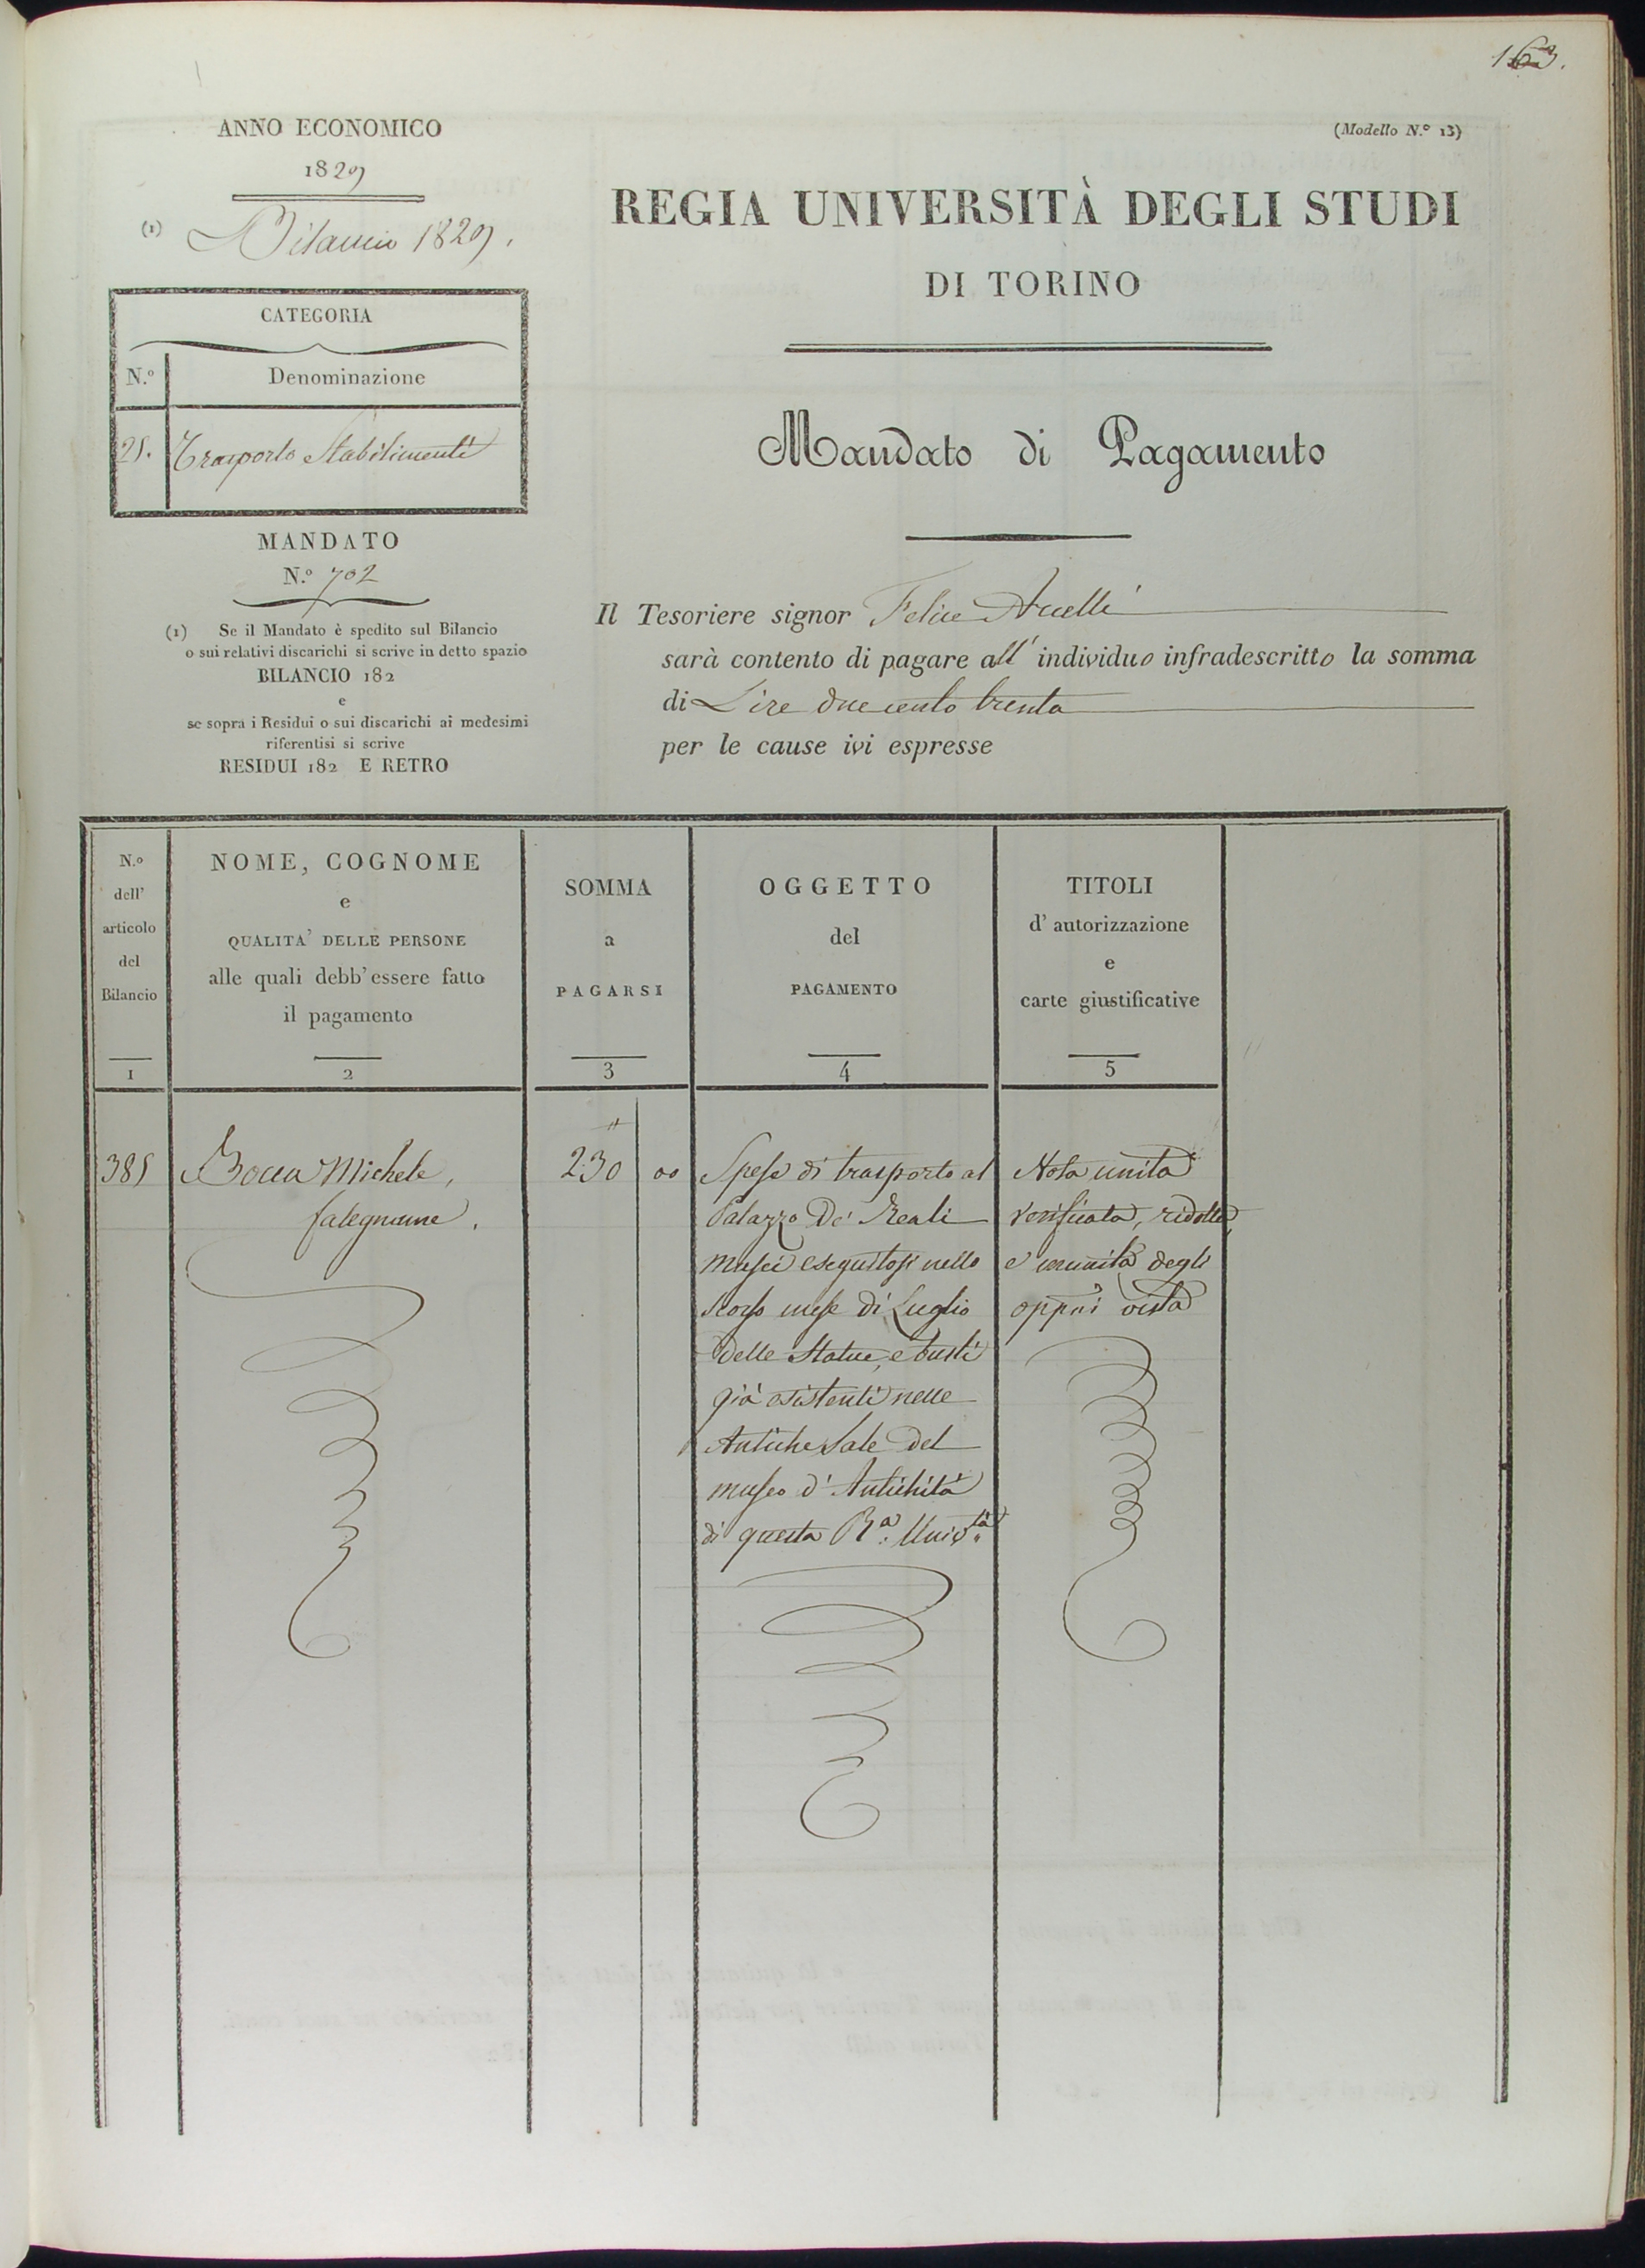 163.
ANNO ECONOMICO
1829
(1) Bilancio 1829.
CATEGORIA
N.º Denominazione
25. Trasporto Stabilimenti
MANDATO
N.º 702
(1) Se il Mandato è spedito sul Bilancio
o sui relativi discarichi si scrive in detto spazio
BILANCIO 182
e
se sopra i Residui o sui discarichi ai medesimi
riferentisi si scrive
RESIDUI 182 E RETRO
(Modello N.º 13)
REGIA UNIVERSITÀ DEGLI STUDI
DI TORINO
Mandato di Pagamento
Il Tesoriere signor Felice
sarà contento di pagare all' individuo infradescritto la somma
di Lire duecento trenta
per le cause ivi espresse
N.º
dell'
articolo
del
Bilancio
1
NOME, COGNOME
e
QUALITA' DELLE PERSONE
alle quali debb' essere fatto
il pagamento
2
SOMMA
a
PAGARSI
3
OGGETTO
del
PAGAMENTO
4
TITOLI
d' autorizzazione
e
carte giustificative
5
385
Bocca Michele,
falegname.
230 00
Spese di trasporto al
Palazzo De' Reali
musei eseguitosi nello
scorso mese di Luglio
delle Statue, e busti
già esistenti nelle
Antiche Sale del
museo d' Antichità
di questa R.ª Univ.tà
Nota unita
verificata, ridotta,
e munita degli
oppni vista